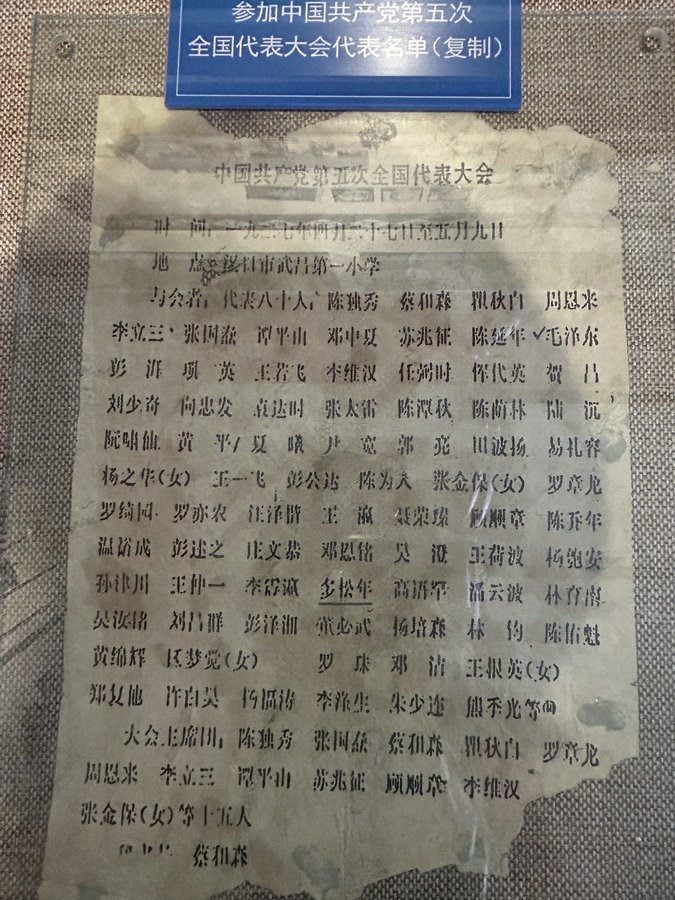 参加中国共产党第五次
全国代表大会代表名单（复制）
中国共产党第五次全国代表大会
时 间：一九二七年四月二十七日至五月九日
地 点：汉口市武昌第一小学
与会者：代表八十人：陈独秀 蔡和森 瞿秋白 周恩来
李立三 张国焘 谭平山 邓中夏 苏兆征 陈延年 ✓毛泽东
彭 湃 项 英 王若飞 李维汉 任弼时 恽代英 贺 昌
刘少奇 向忠发 袁达时 张太雷 陈潭秋 陈荫林 陆 沉
阮啸仙 黄 平 夏 曦 尹 宽 郭 亮 田波扬 易礼容
杨之华（女） 王一飞 彭公达 陈为人 张金保（女） 罗章龙
罗绮园 罗亦农 汪泽楷 王 瀛 聂荣臻 顾顺章 陈乔年
温裕成 彭述之 庄文恭 邓恩铭 吴 澄 王荷波 杨匏安
孙津川 王仲一 李震瀛 多松年 高语罕 潘云波 林育南
吴汝铭 刘昌群 彭泽湘 董必武 杨培森 林 钧 陈佑魁
黄锦辉 区梦觉（女） 罗 珠 邓 洁 王根英（女）
郑复他 许白昊 杨福涛 李涤生 朱少连 熊季光等
大会主席团：陈独秀 张国焘 蔡和森 瞿秋白 罗章龙
周恩来 李立三 谭平山 苏兆征 顾顺章 李维汉
张金保（女）等十五人
蔡和森